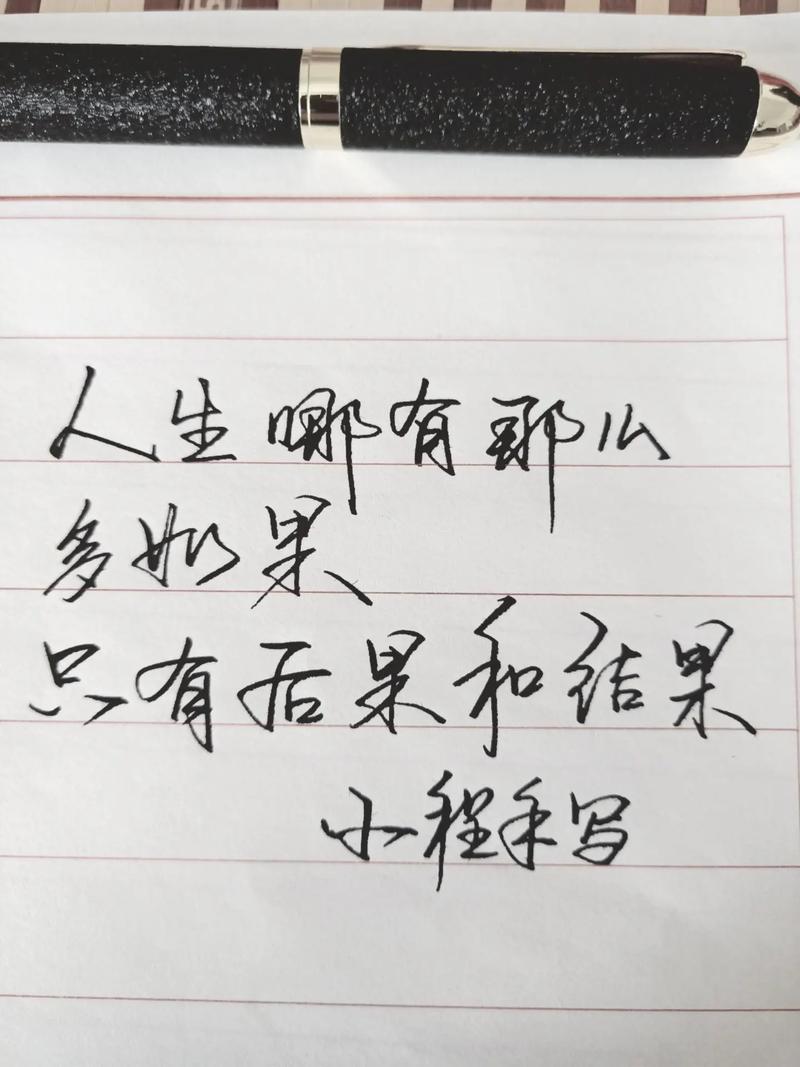 人生哪有那么
多如果
只有后果和结果
小程手写